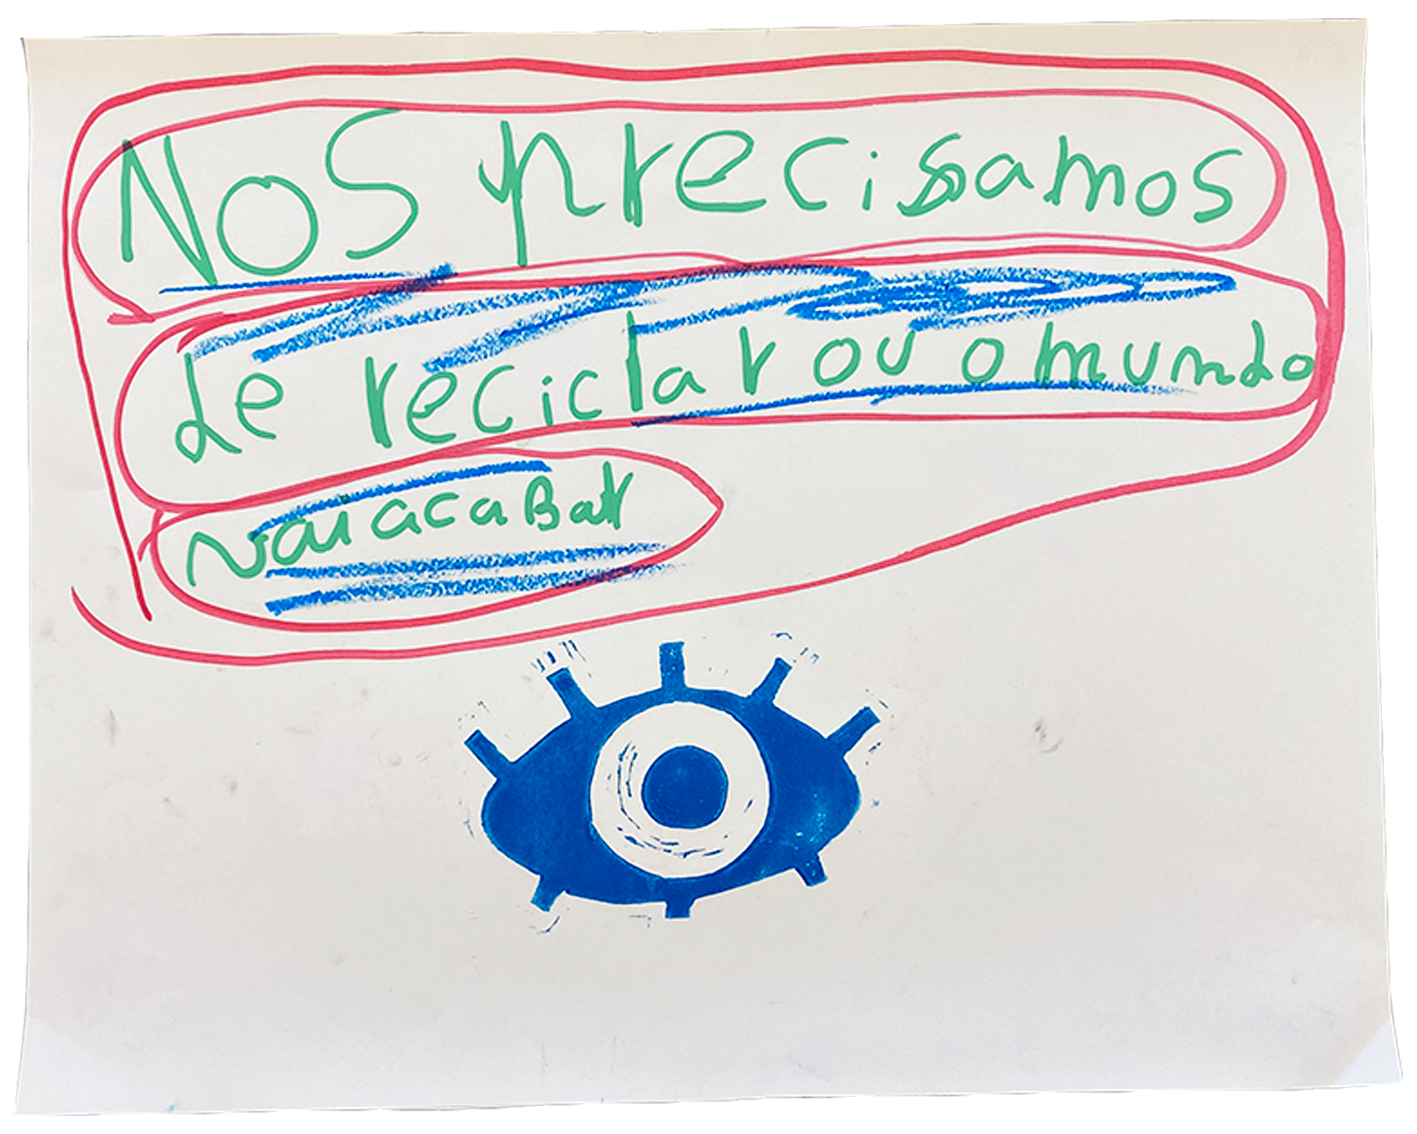 NOS precisamos
de reciclar ou o mundo
vai acaBar